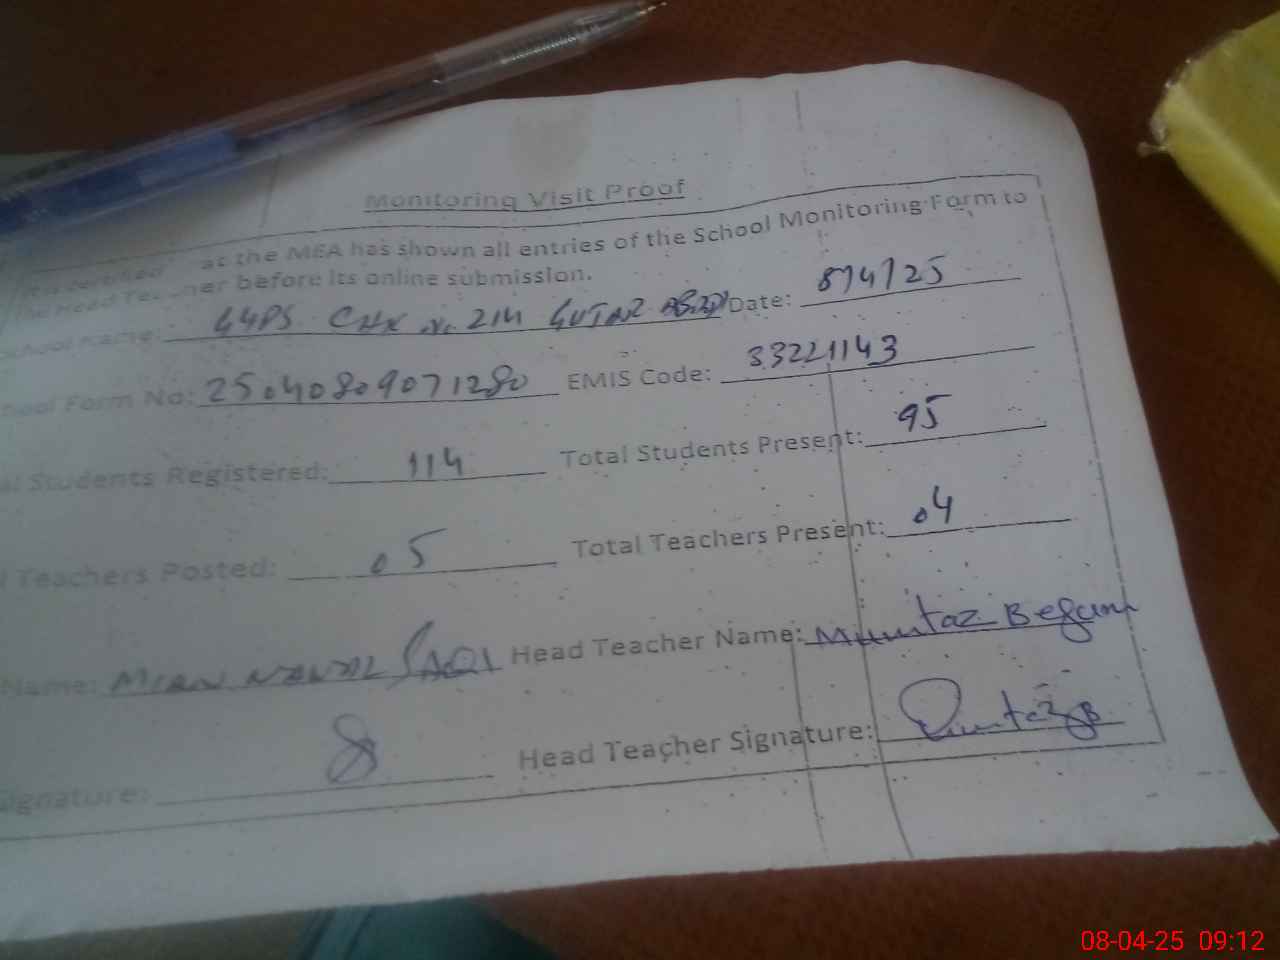 Monitoring Visit Proof
at the MEA has shown all entries of the School Monitoring Form to
the Head Teacher before its online submission.
School Name: GGPS CHK No 214 Date: 8/4/25
School Form No: 25040809071280 EMIS Code: 33221143
Students Registered: 114 Total Students Present: 95
Teachers Posted: 05 Total Teachers Present: 04
Name: MIAN Head Teacher Name: Mumtaz Begum
Signature: Head Teacher Signature:
08-04-25 09:12